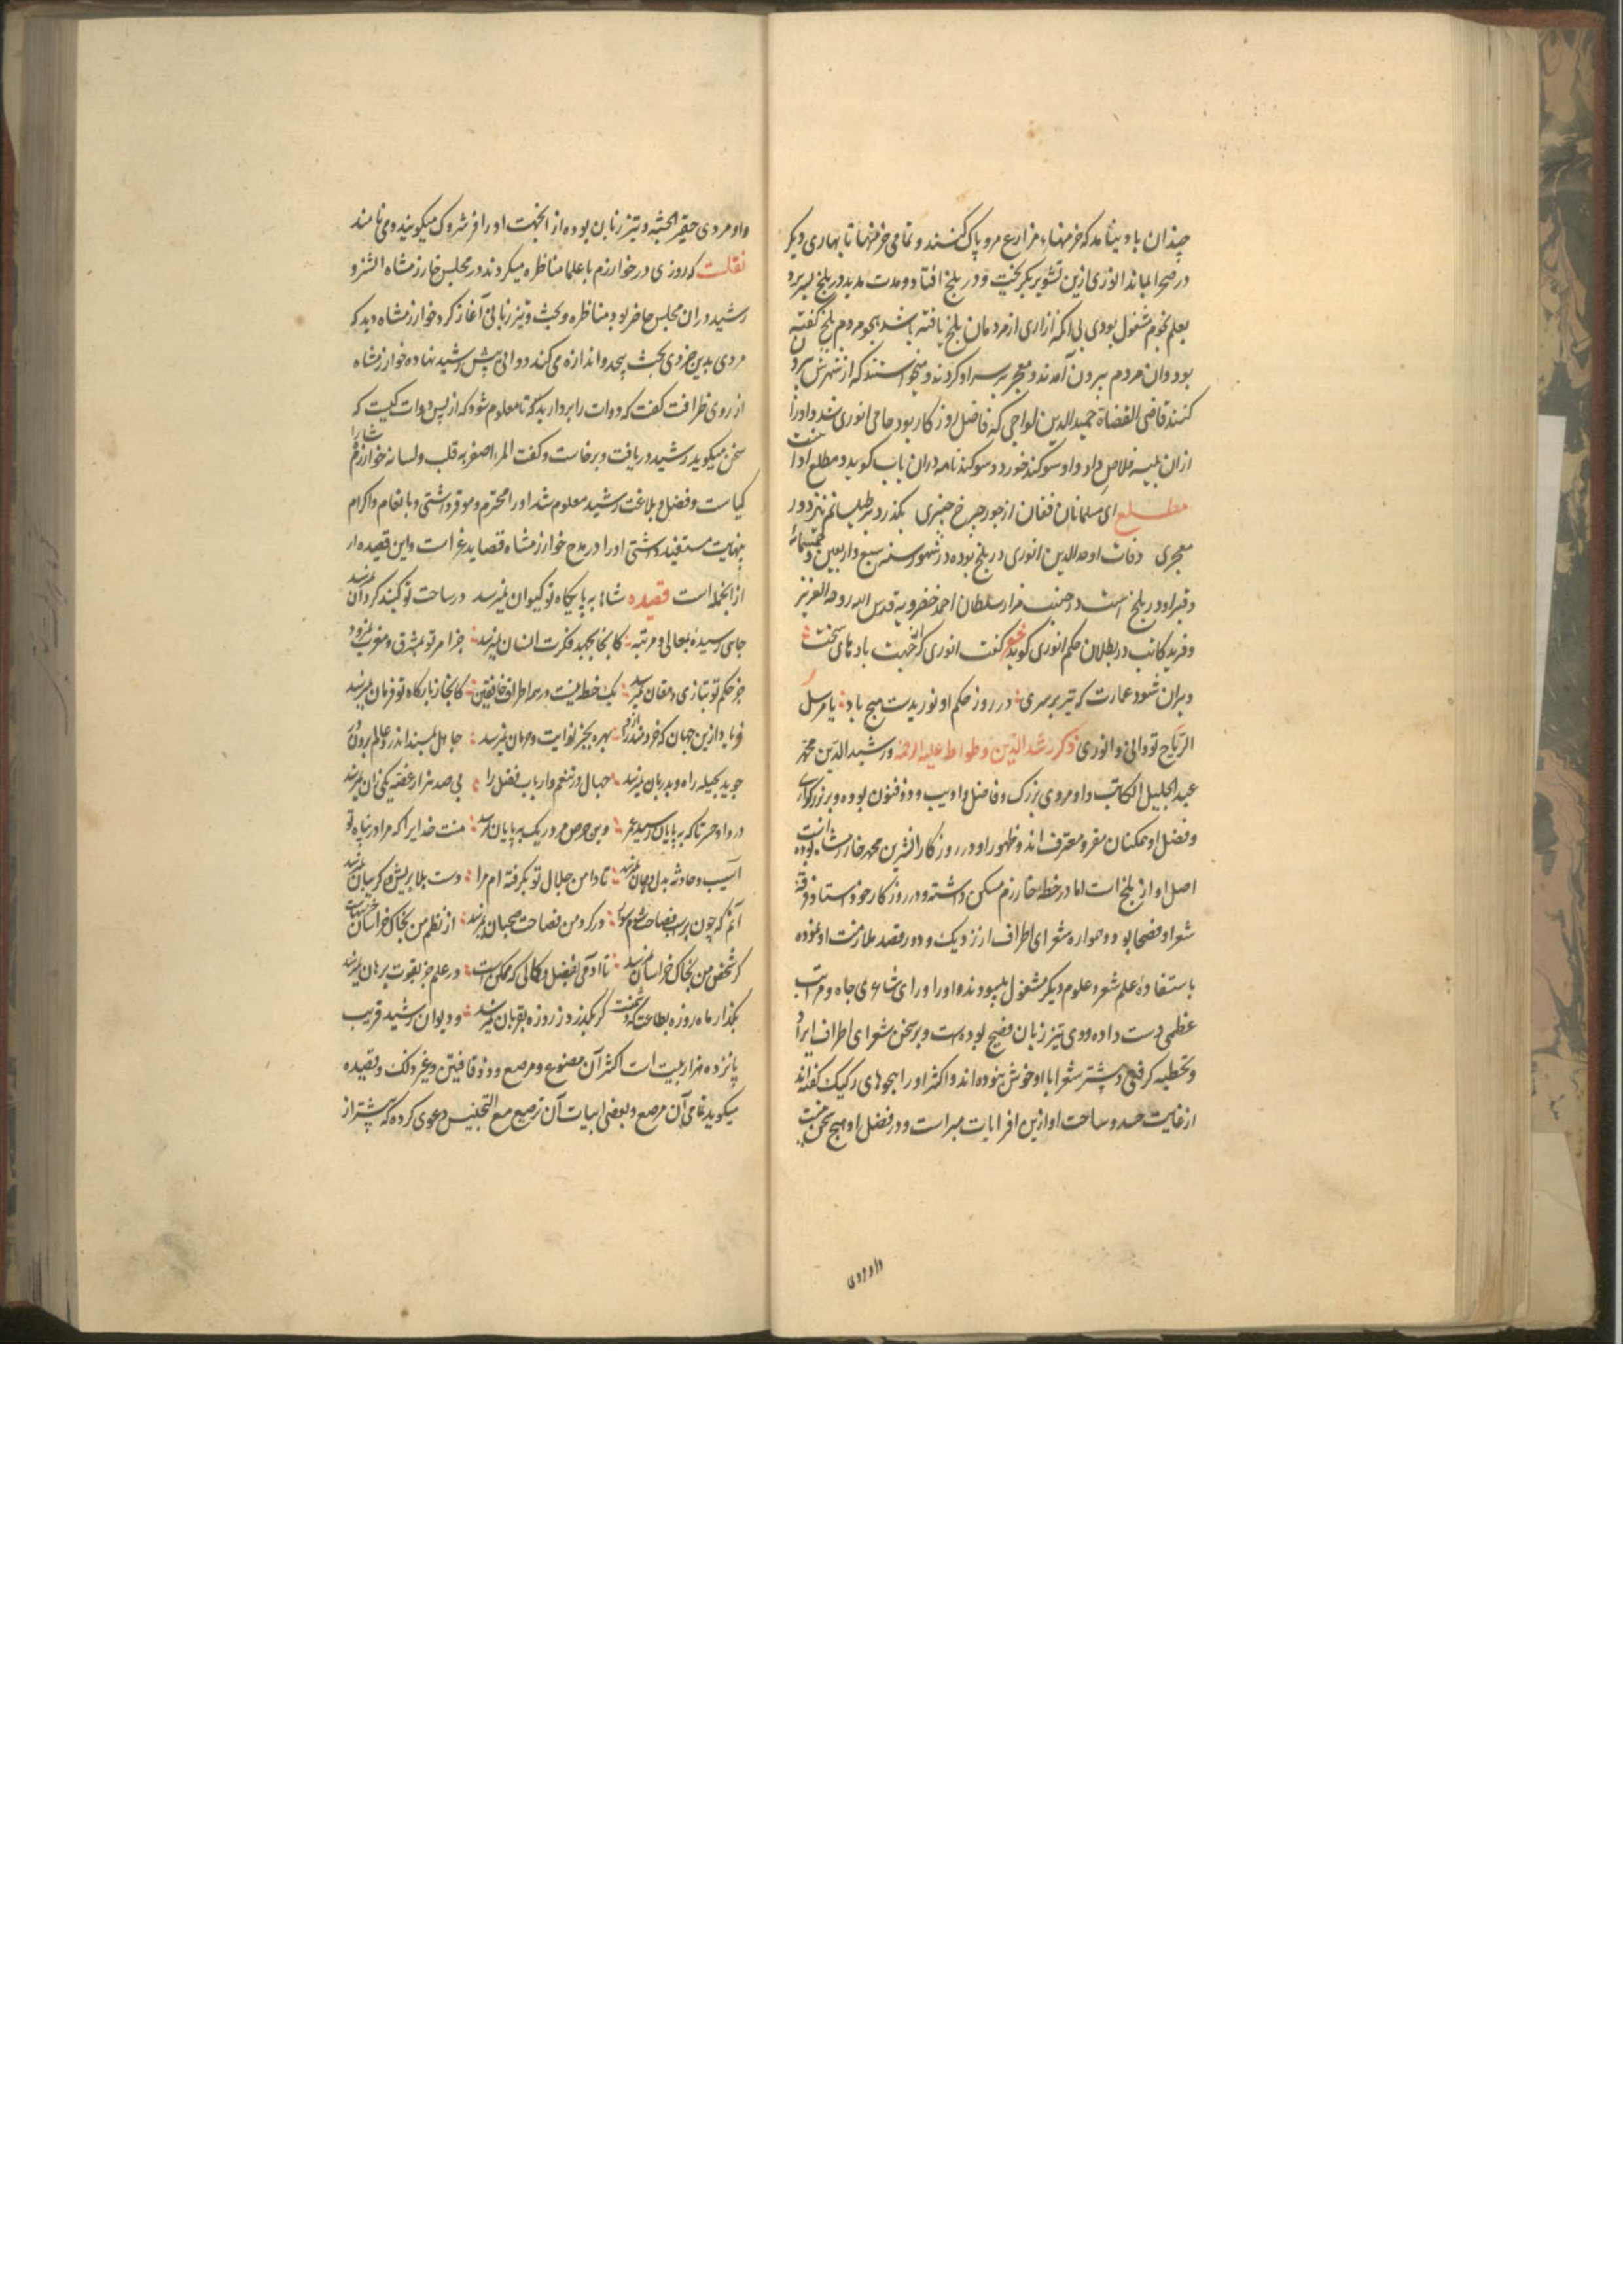 چندان باد نیامد که خرمنهاء مزارع مرو پاک کنند و تمامی خرمنها تا بهاری دیکر
در صحرا بماند انوری ازین تشویر بکریخت و در بلخ افتاد و مدت مدید در بلخ بسر برد
بعلم نجوم مشغول بودی بی آنکه ازاری از مردمان بلخ یافته باشد هجو مردم بلخ کفته
بود وان مردم بیرون آمدند و معجر بر سر او کردند و میخواستند که از شهرش بیرون
کنند قاضی القضاة حمید الدین لواجی که فاضل روزکار بود حامی انوری شد و او را
ازان بلیه خلاص داد و او سوکند خورد و سوکند نامه دران باب کوید و مطلع او انست
مطلع ای مسلمانان فغان از جور چرخ چنبری
معجری وفات اوحد الدین انوری در بلخ بوده در شهور سنه سبع واربعین و خمسمائه
وقبر او در بلخ است در جنب مزار سلطان احمد خضرویه قدس الله روحه العزیز
و فرید کاتب در بطلان حکم انوری کوید کفت انوری که از جهت بادهای سخت
ویران شود عمارت که نیز بر سری در روز حکم او نوزیدست هیچ باد یا مرسل
الریاح تو دانی و انوری ذکر رشد الدین وطواط علیه الرحمه ورشید الدین محمد
عبد الجلیل الکاتب و او مردی بزرک و فاضل و ادیب و ذوفنون بوده و بر بزرکواری
و فضل او همکنان مقر و معترف اند و ظهور او در روزکار اتسز بن محمد خارزمشاه بوده است
اصل او از بلخ است اما در خطه خارزم مسکن داشته و در روزکار خود استاد فرقه
شعرا و فصحا بود و همواره شعرای اطراف از نزدیک و دور قصد ملازمت او نموده
باستفاده علم شعر و علوم دیکر مشغول میبودند و او را ورای شاعری جاه و مراتب
عظمی دست داده و وی تیز زبان فصیح بوده است و بر سخن شعرای اطراف ایراد
و تخطیه کرفتی و بیشتر شعرا با او خوش نبوده اند و اکثر او را هجوهای رکیک کفته اند
از غایت حسد و ساحت او ازین افرایات مبراست و در فضل او هیچ سخن نیست
و او مردی
و او مردی حقیر الجثه و تیز زبان بوده از انجهت او را فرشروک میکویند و می نامند
نقلت که روزی در خوارزم با علما مناظره میکردند در مجلس خارزمشاه اتسز و
رشید دران مجلس حاضر بود مناظره و بحث و تیز زبانی آغاز کرد خوارزمشاه دید که
مردی بدین خردی بحث بیحد و اندازه می کند دواتی پیش رشید نهاده خوارزمشاه
از روی ظرافت کفت که دوات را بردارید تا معلوم شود که از پس دوات کیست که
سخن میکوید رشید دریافت و برخاست و کفت المرء باصغریه قلبه ولسانه خوارزمشاه را
کیاست و فضل و بلاغت رشید معلوم شد او را محترم و موقر داشتی و بانعام و اکرام
بنهایت مستفید داشتی او را در مدح خوارزمشاه قصاید غراست و این قصیده از
از انجمله است قصیده شاها به پایکاه تو کیوان نمیرسد در ساحت تو کنبد کردان نمیرسد
جای رسیدهٔ بمعالی و مرتبه کانجا بجهد فکرت انسان نمیرسد جز امر تو بمشرق و مغرب نمیرود
جز حکم تو بتازی و دهقان نمیرسد یک خطه نیست در همه اطراف خافقین کانجا ز بارکاه تو فرمان نمیرسد
فریاد ازین جهان که خردمند را ازو بهره بجز نوایب و حرمان نمیرسد جاهل بمسند اندر و عالم برون در
جوید بحیله راه و بدربان نمیرسد جهال در تنعم و ارباب فضل را بی صد هزار غصه یکی نان نمیرسد
دردا و حسرتا که بپایان رسید عمر وین حرص مرده ریک بپایان نمیرسد منت خدایرا که مرا در پناه تو
آسیب و حادثه بدل و جان نمیرسد تا دامن جلال تو بکرفته ام مرا دست بلا بریش و کریبان نمیرسد
آنم که چون بر اسب فصاحت شوم سوار در کرد من فصاحت سحبان نمیرسد از نظم من بخاک خراسان
کر شخص من بخاک خراسان نمیرسد تا آدمی بفضل و کمالی که ممکن است در علم جز بقوت برهان نمیرسد
بکذار ماه روزه بطاعت که دشمنت کر بکذرد ز روزه بقربان نمیرسد و دیوان رشید قریب
پانزده هزار بیت است اکثر آن مصنوع و مرصع و ذو قافیتین و غیر ذلک و قصیده
میکوید تمامی آن مرصع و بعضی ابیات آن ترصیع مع التجنیس و دعوی کرده که پیشتر از